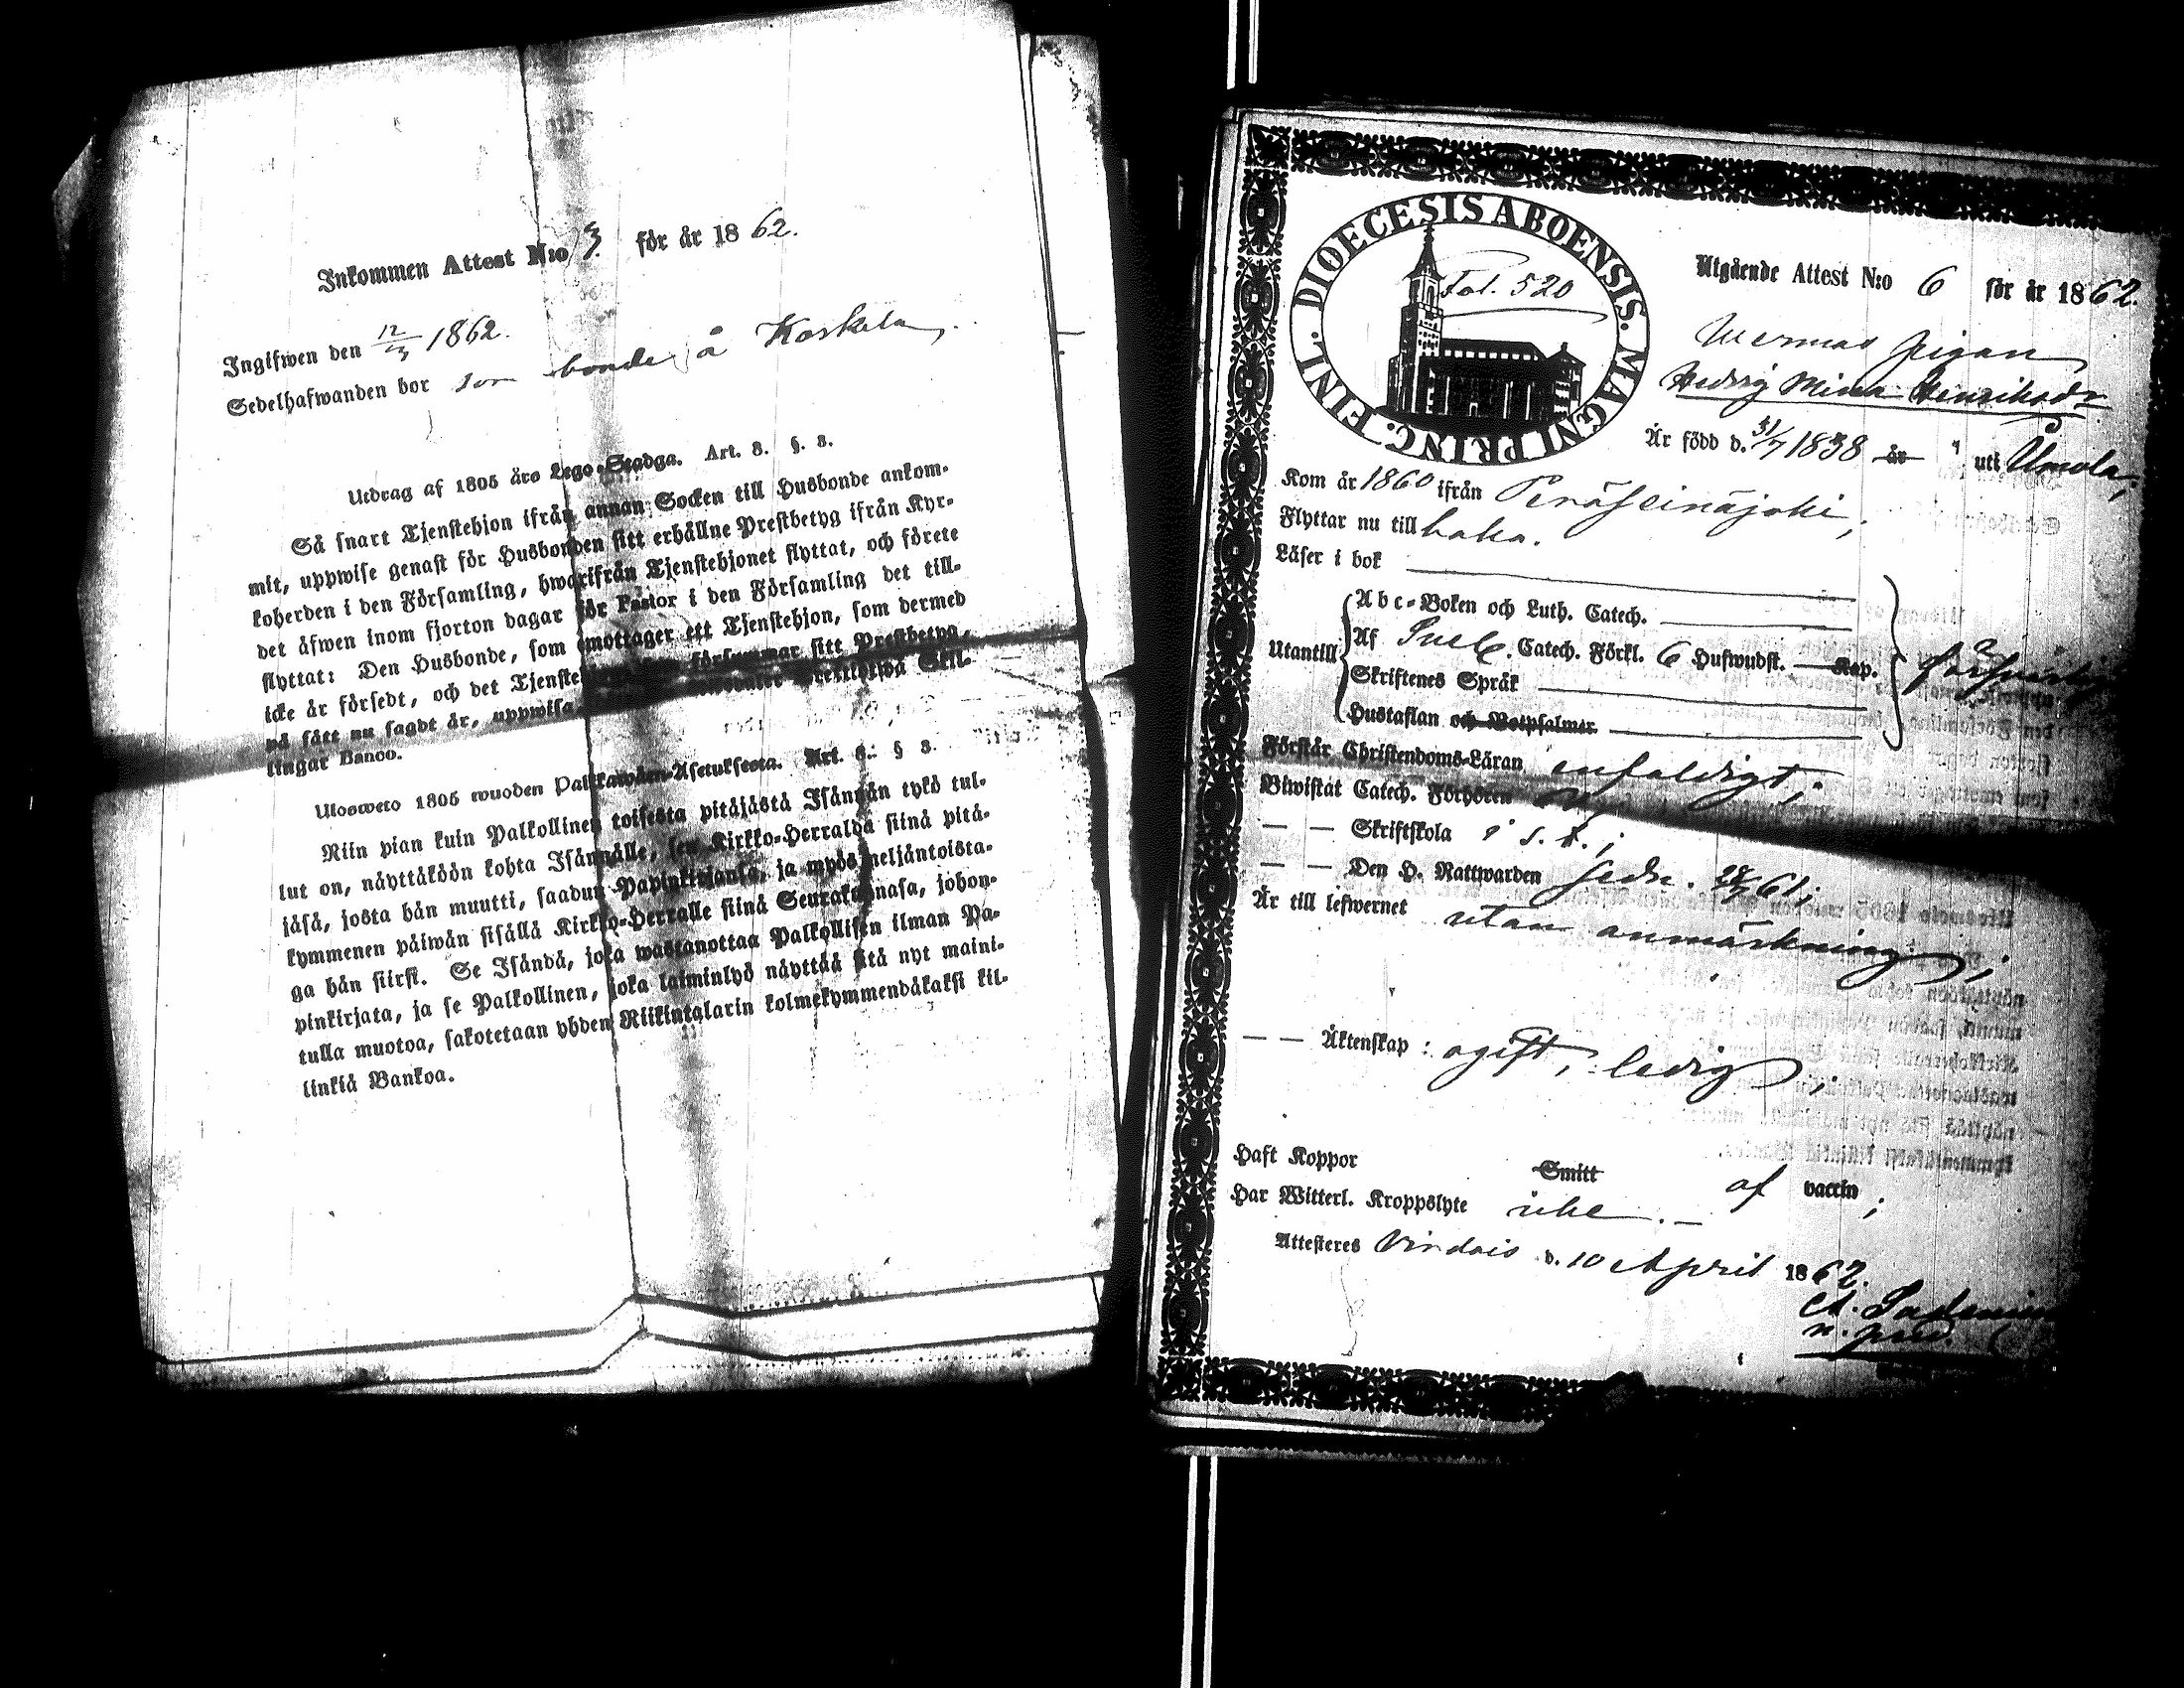 Inkommen Attest N:o 3. för år 1862.
Ingifwen den 12/3 1862.
Sedelhafwanden bor som bonde å Koskela
Utdrag af 1805 års Lego-Stadga. Art. 3. §. 3.
Så snart Tjenstehjon ifrån annan Socken till Husbonde ankom-
mit, uppwise genast för Husbonden sitt erhållne Prestbetyg ifrån Kyr-
koherden i den Församling, hwarifrån Tjenstehjonet flyttat, och förete
det äfwen inom fjorton dagar för Pastor i den Församling det till-
flyttat: Den Husbonde, som emottager ett Tjenstehjon, som dermed
icke är försedt, och det Tjenste försummar sitt Prestbetyg,
på sätt nu sagdt är, uppwisa, Skil-
lingar Banco.
Ulosweto 1805 wuoden Palkkawäen-Asetuksesta. Art. 3.: § 3.
Niin pian kuin Palkollinen toisesta pitäjästä Isännän tykö tul-
lut on, näyttäköön kohta Isännälle, sen Kirkko-Herralda siinä pitä-
jäsä, josta hän muutti, saadun Papinkirjansa, ja myös neljäntoista-
kymmenen päiwän sisällä Kirkko-Herralle siinä Seurakunnasa, johon-
ga hän siirst. Se Isändä, joka wastanottaa Palkollisen ilman Pa-
pinkirjata, ja se Palkollinen, joka laiminlyö näyttää sitä nyt maini-
tulla muotoa, sakotetaan yhden Riikintalarin kolmekymmendäkaksi kil-
linkiä Bankoa.
DIOECESIS ABOENSIS. MAGNI PRINC. FINL.
Fol. 520
Utgående Attest N:o 6 för år 1862.
pigan
Hedvig Mina Henriksdr
Är född d. 31/7 1838 år uti Umola;
Kom år 1860 ifrån Peräseinäjoki;
Flyttar nu till
Läser i bok
Utantill
Abc-Boken och Luth. Catech.
Af Sveb. Catech. Förkl. 6 Hufwudst. Kap.
Skriftenes Språk
Hustaflan och Botpsalmer
försvarlig
Förstår Christendoms-Läran enfaldigt;
Biwistat Catech. Förhören
— — Skriftskola i s. t.;
— — Den H. Nattwarden sedn. 61;
Är till lefwernet utan anmärkning;
— — Äktenskap: ogift, ledig;
Haft Koppor Smitt af vaccin;
Har Witterl. Kroppslyte icke.
Attesteres Virdois d. 10 April 1862.